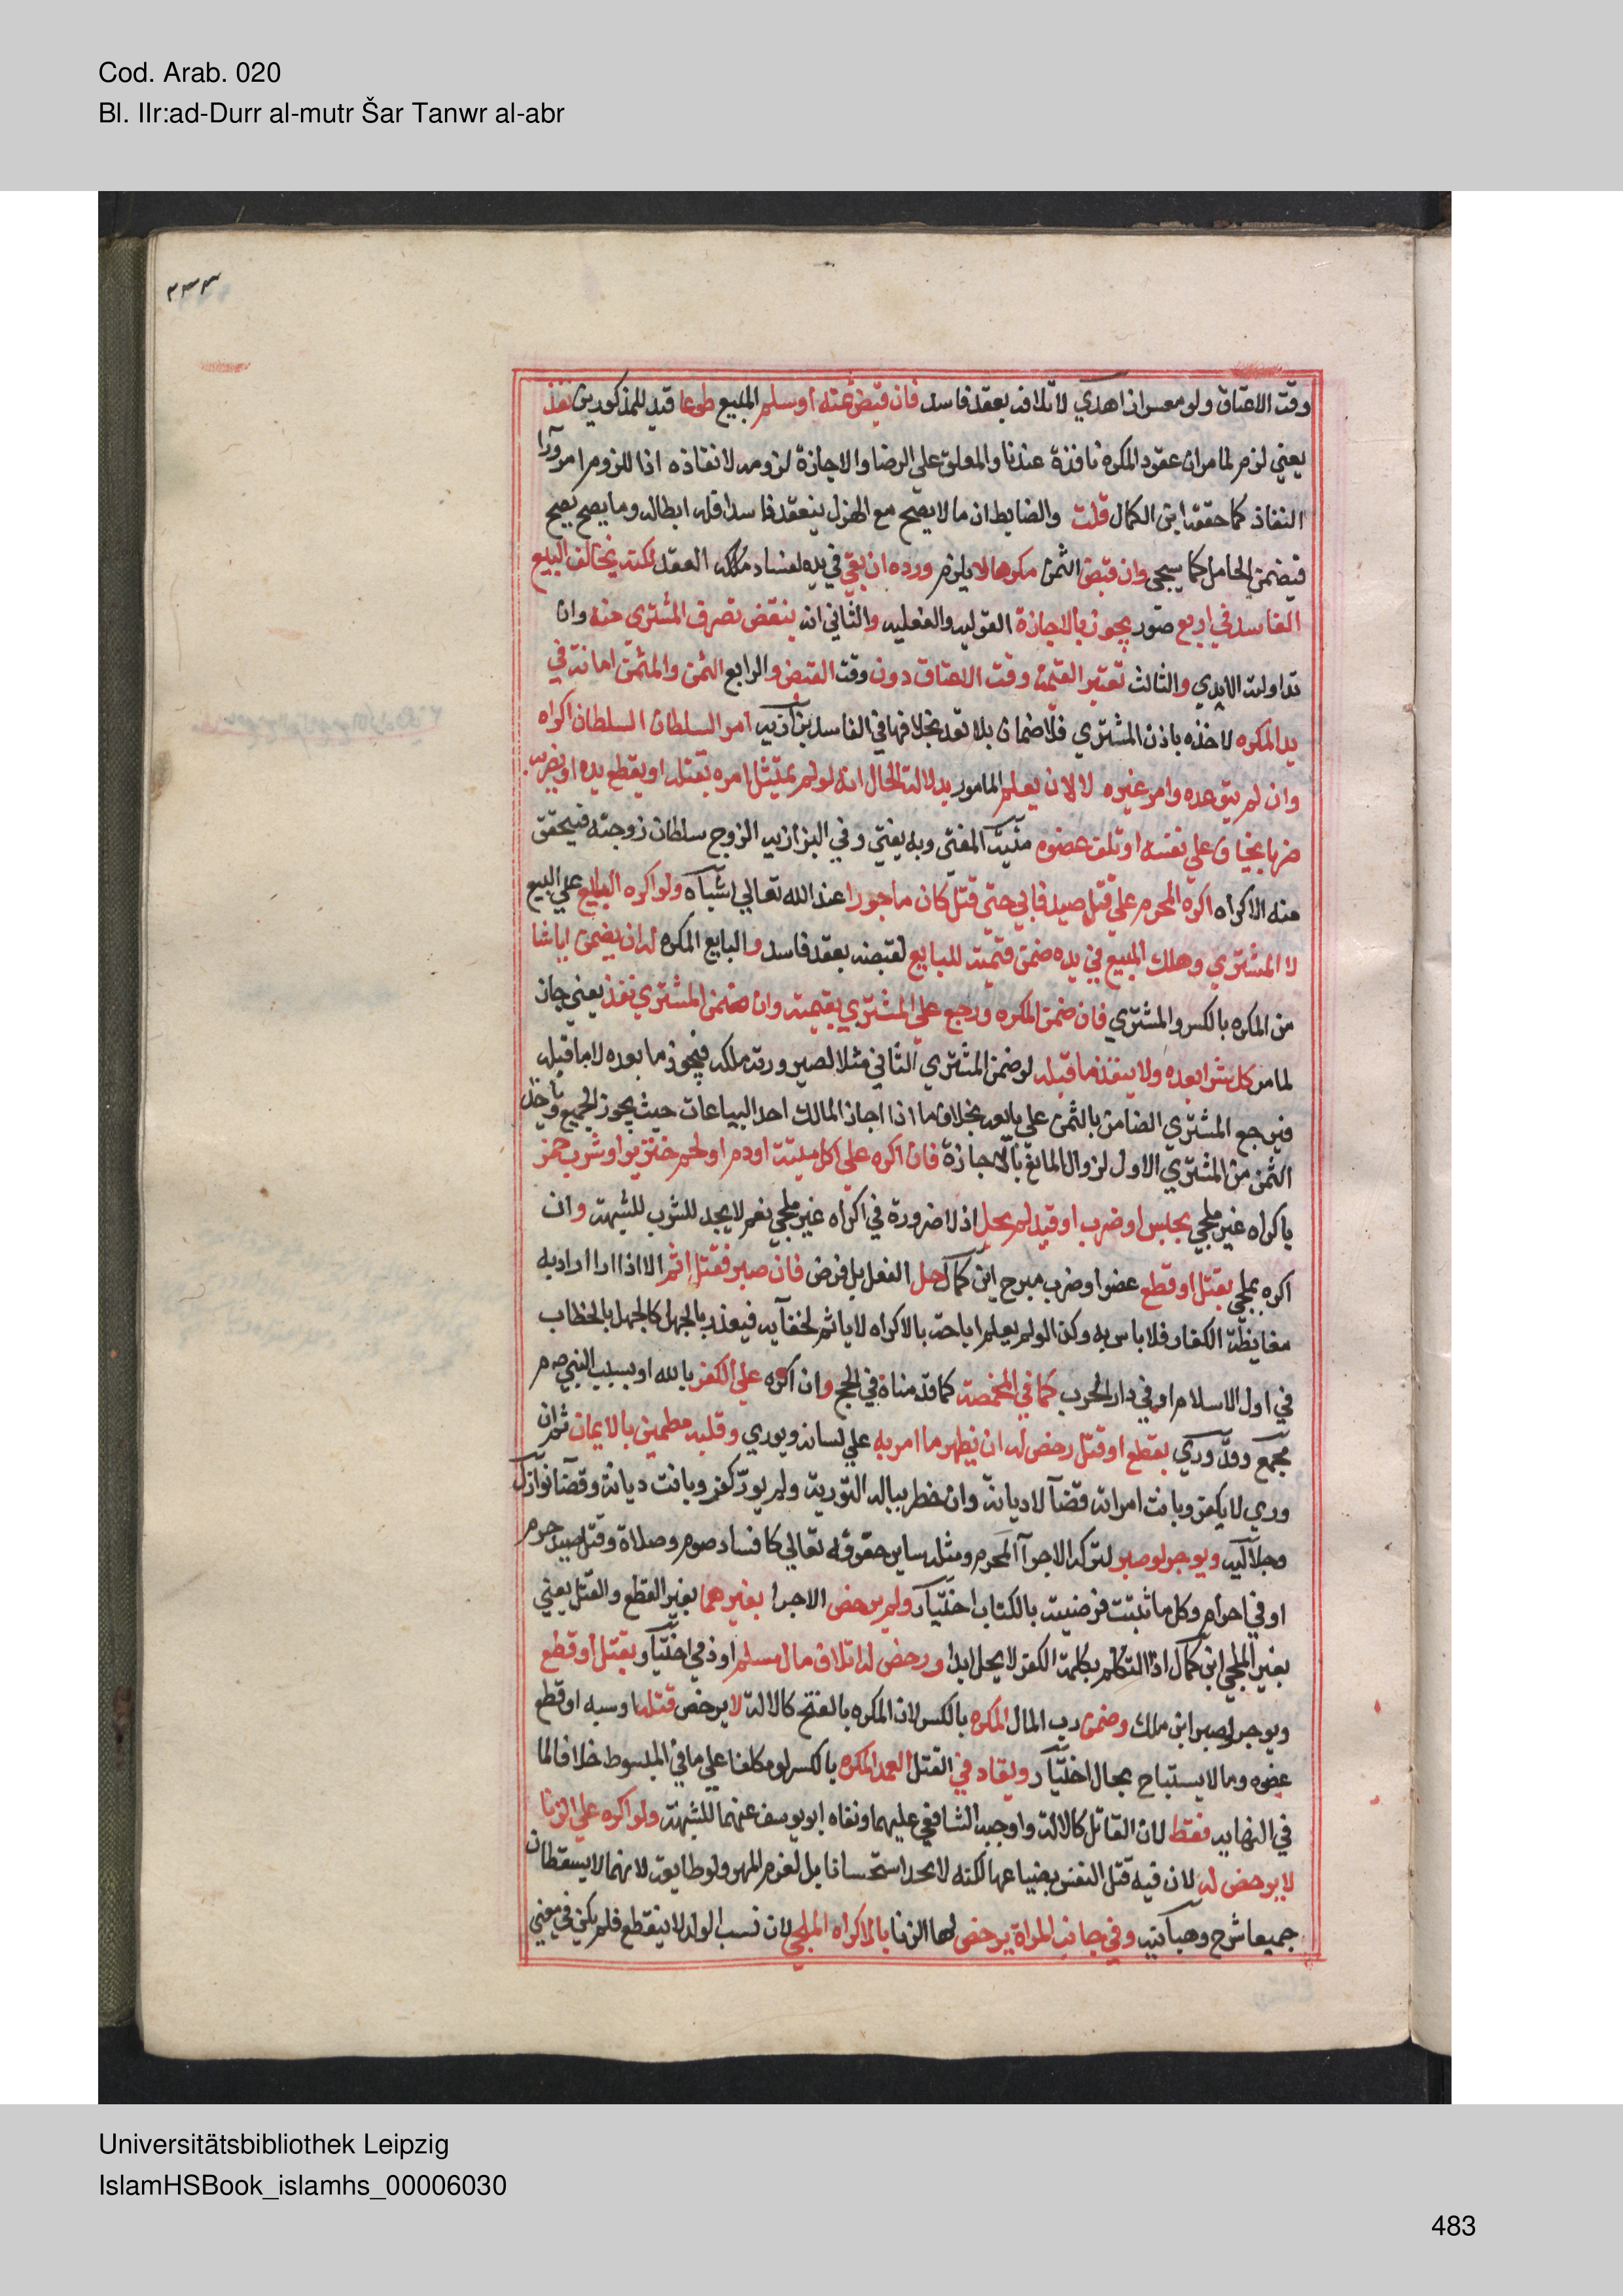 Cod. Arab. 020
Bl. IIr:ad-Durr al-mutr Šar Tanwr al-abr
٣٣٣
وقت الاعتاق ولو معسرا زاهدي لاتلافه بعقد فاسد فان قبض ثمنه أو سلم المبيع طوعا قيد للمذكورين نفذ
يعني لزم لما مر ان عقود المكره نافذة عندنا والمعلق على الرضا والاجازة لزومه لا نفاذه اذ اللزوم امر ورا
النفاذ كما حققه ابن الكمال قلت والضابط ان مالا يصح مع الهزل ينعقد فاسدا فله ابطاله وما يصح يصح
فيضمن الحامل كما سيجي وان قبض الثمن مكرها لا يلزم ورده ان بقي في يده لفساد العقد لكنه يخالف البيع
الفاسد في اربع صور يجوز بالاجازة القوليه والفعليه والثاني انه ينقض تصرف المشترى منه وان
تداولته الايدي والثالث تعتبر القيمة وقت الاعتاق دون وقت القبض والرابع الثمن والمثمن امانة في
يد المكره لاخذه باذن المشتري فلا ضمان بلا تعد بخلافها في الفاسد بزازيه امر السلطان السلطان اكراه
وان لم يتوعده وامر غيره لا الا ان يعلم المامور بدلالة الحال انه لو لم يمتثل امره يقتله او يقطع يده او يضربه
ضربا يخاف على نفسه او تلف عضوه منية المفتي وبه يفتي وفي البزازيه الزوج سلطان زوجته فيتحقق
منه الاكراه اكره المحرم على قتل صيد فابي حتى قتل كان ماجورا عند الله تعالي اشباه ولو اكره البايع على البيع
لا المشتري وهلك المبيع في يده ضمن قيمته للبايع لقبضه بعقد فاسد والبايع المكره له ان يضمن ايا شا
من المكره بالكسر والمشتري فان ضمن المكره ورجع على المشتري بقيمته وان ضمن المشتري نفذ يعني جاز
لما مر كل شرا بعده ولا ينفذ ما قبله لو ضمن المشتري الثاني مثلا لصيرورته ملكه فيجوز ما بعده لا ما قبله
فيرجع المشتري الضامن بالثمن على بايعه بخلاف ما اذا اجاز المالك احد البياعات حيث يجوز الجميع وياخذ
الثمن من المشتري الاول لزوال المانع بالاجازة فان اكره على اكل ميتة او دم او لحم خنزير او شرب خمر
باكراه غير ملجي بحبس او ضرب او قيد لم يحل اذ لا ضرورة في اكراه غير ملجي نعم لا يحد للشرب للشبهة وان
اكره بملجي بقتل او قطع عضو او ضرب مبرح ابن كمال حل الفعل بل فرض فان صبر فقتل اثم الا اذا اراد به
مغايظة الكفار فلا باس به وكذا لو لم يعلم اباحته بالاكراه لا ياثم لخفايه فيعذر بالجهل كالجهل بالخطاب
في اول الاسلام او في دار الحرب كما في المخمصة كما قدمناه في الحج وان اكره على الكفر بالله او بسب النبي صم
مجمع وقدوري بقطع او قتل رخص له ان يظهر ما امر به على لسانه ويوري وقلبه مطمين بالايمان ثم ان
وري لا يكفر وبانت امراته قضا لا ديانة وان خطر بباله التورية ولم يور كفر وبانت ديانة وقضا نوازل
وجلاليه ويوجر لو صبر لتركه الاجرا المحرم ومثله ساير حقوقه تعالي كافساد صوم وصلاة وقتل صيد حرم
او في احرام وكل ما ثبتت فرضيته بالكتاب اختيار ولم يرخص الاجرا بغيرهما بغير القطع والقتل يعني
بغير الملجي ابن كمال اذ التكلم بكلمة الكفر لا يحل ابدا ورخص له اتلاف مال مسلم او ذمي اختيار بقتل او قطع
ويوجر لو صبر ابن ملك وضمن رب المال المكره بالكسر لان المكره بالفتح كالالة لا يرخص قتله او سبه او قطع
عضوه وما لا يستباح بحال اختيار ويقاد في القتل العمد المكره بالكسر لو مكلفا على ما في المبسوط خلافا لما
في النهايه فقط لان القاتل كالالة واوجبه الشافعي عليهما ونفاه ابو يوسف عنهما للشبهة ولو اكره على الزنا
لا يرخص له لان فيه قتل النفس بضياعها لكنه لا يحد استحسانا بل لغرم المهر ولو طايعة لانهما لا يسقطان
جميعا شرح وهبانيه وفي جانب المراة يرخص لها الزنا بالاكراه الملجي لان نسب الولد لا ينقطع فلم يكن في معني
Universitätsbibliothek Leipzig
IslamHSBook_islamhs_00006030
483